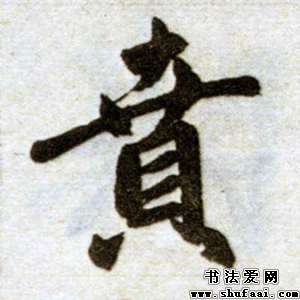 賁
书法爱网
www.shufaai.com